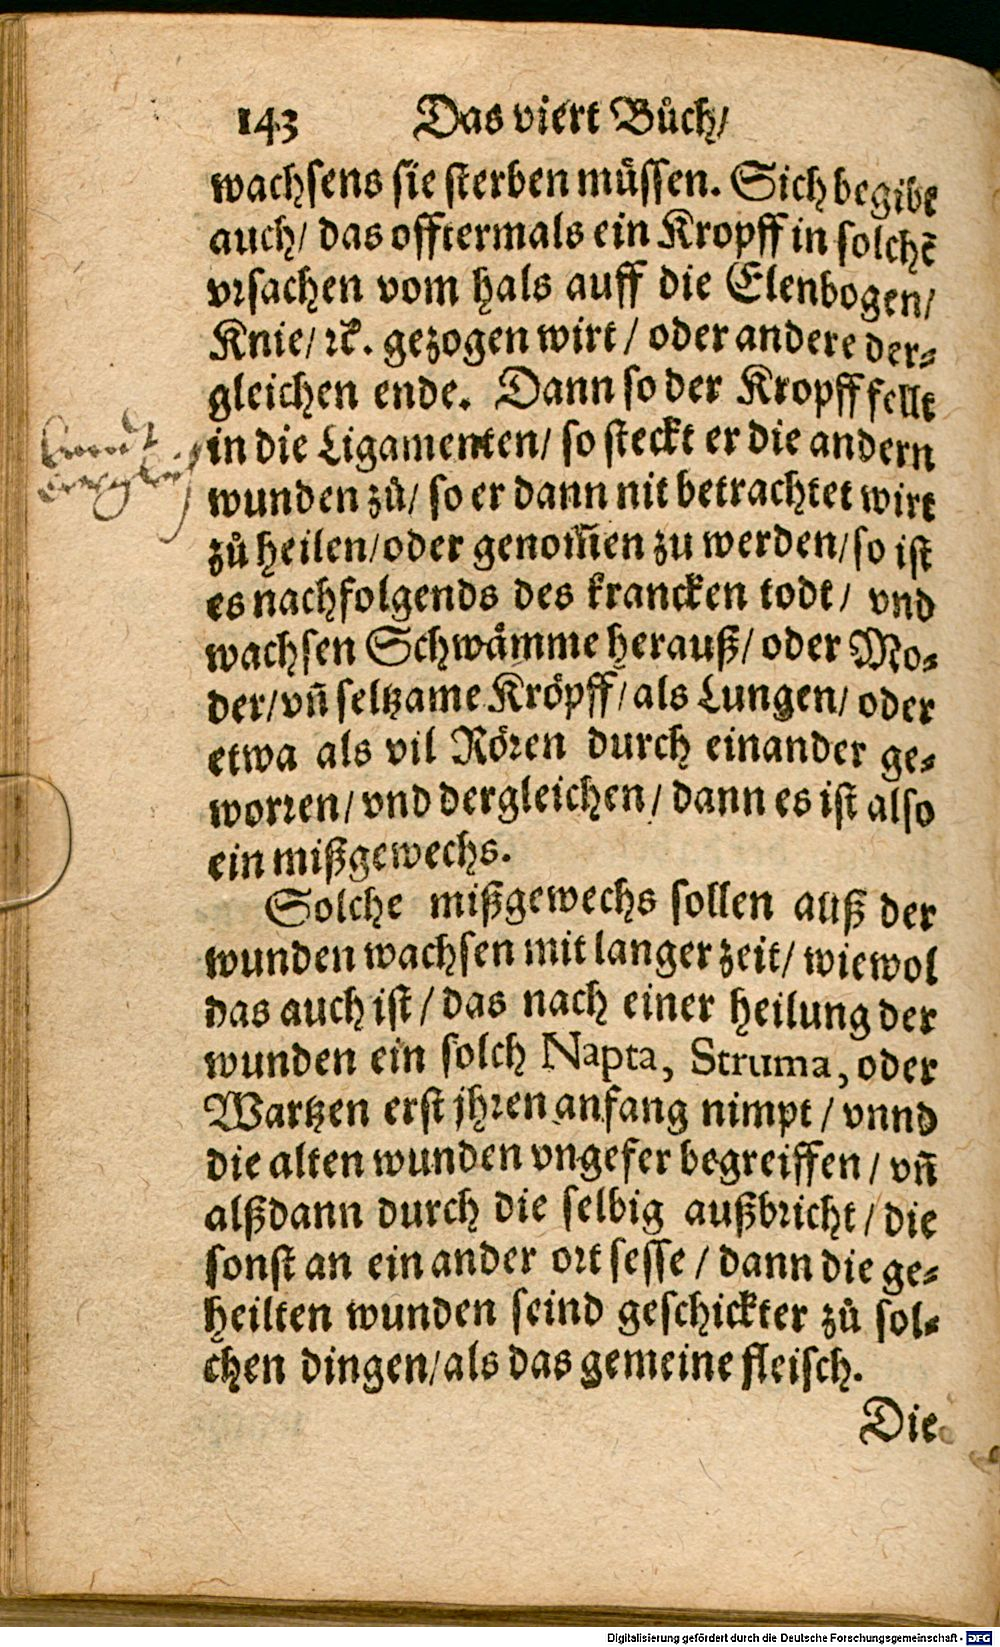 143 Das viert Bůch/
wachsens sie sterben müssen. Sich begibt
auch/ das offtermals ein Kropff in solchẽ
vrsachen vom hals auff die Elenbogen/
Knie/ ꝛc. gezogen wirt/ oder andere der-
gleichen ende. Dann so der Kropff fellt
in die Ligamenten/ so steckt er die andern
wunden zů/ so er dann nit betrachtet wirt
zů heilen/ oder genom̃en zu werden/ so ist
es nachfolgends des krancken todt/ vnd
wachsen Schwämme herauß/ oder Mo-
der/ vñ seltzame Kröpff/ als Lungen/ oder
etwa als vil Rören durch einander ge-
worren/ vnd dergleichen/ dann es ist also
ein mißgewechs.
Solche mißgewechs sollen auß der
wunden wachsen mit langer zeit/ wiewol
das auch ist/ das nach einer heilung der
wunden ein solch Napta, Struma, oder
Wartzen erst jhren anfang nimpt/ vnnd
die alten wunden vngefer begreiffen/ vñ
alßdann durch die selbig außbricht/ die
sonst an ein ander ort sesse/ dann die ge-
heilten wunden seind geschickter zů sol-
chen dingen/ als das gemeine fleisch.
Die
Digitalisierung gefördert durch die Deutsche Forschungsgemeinschaft - DFG